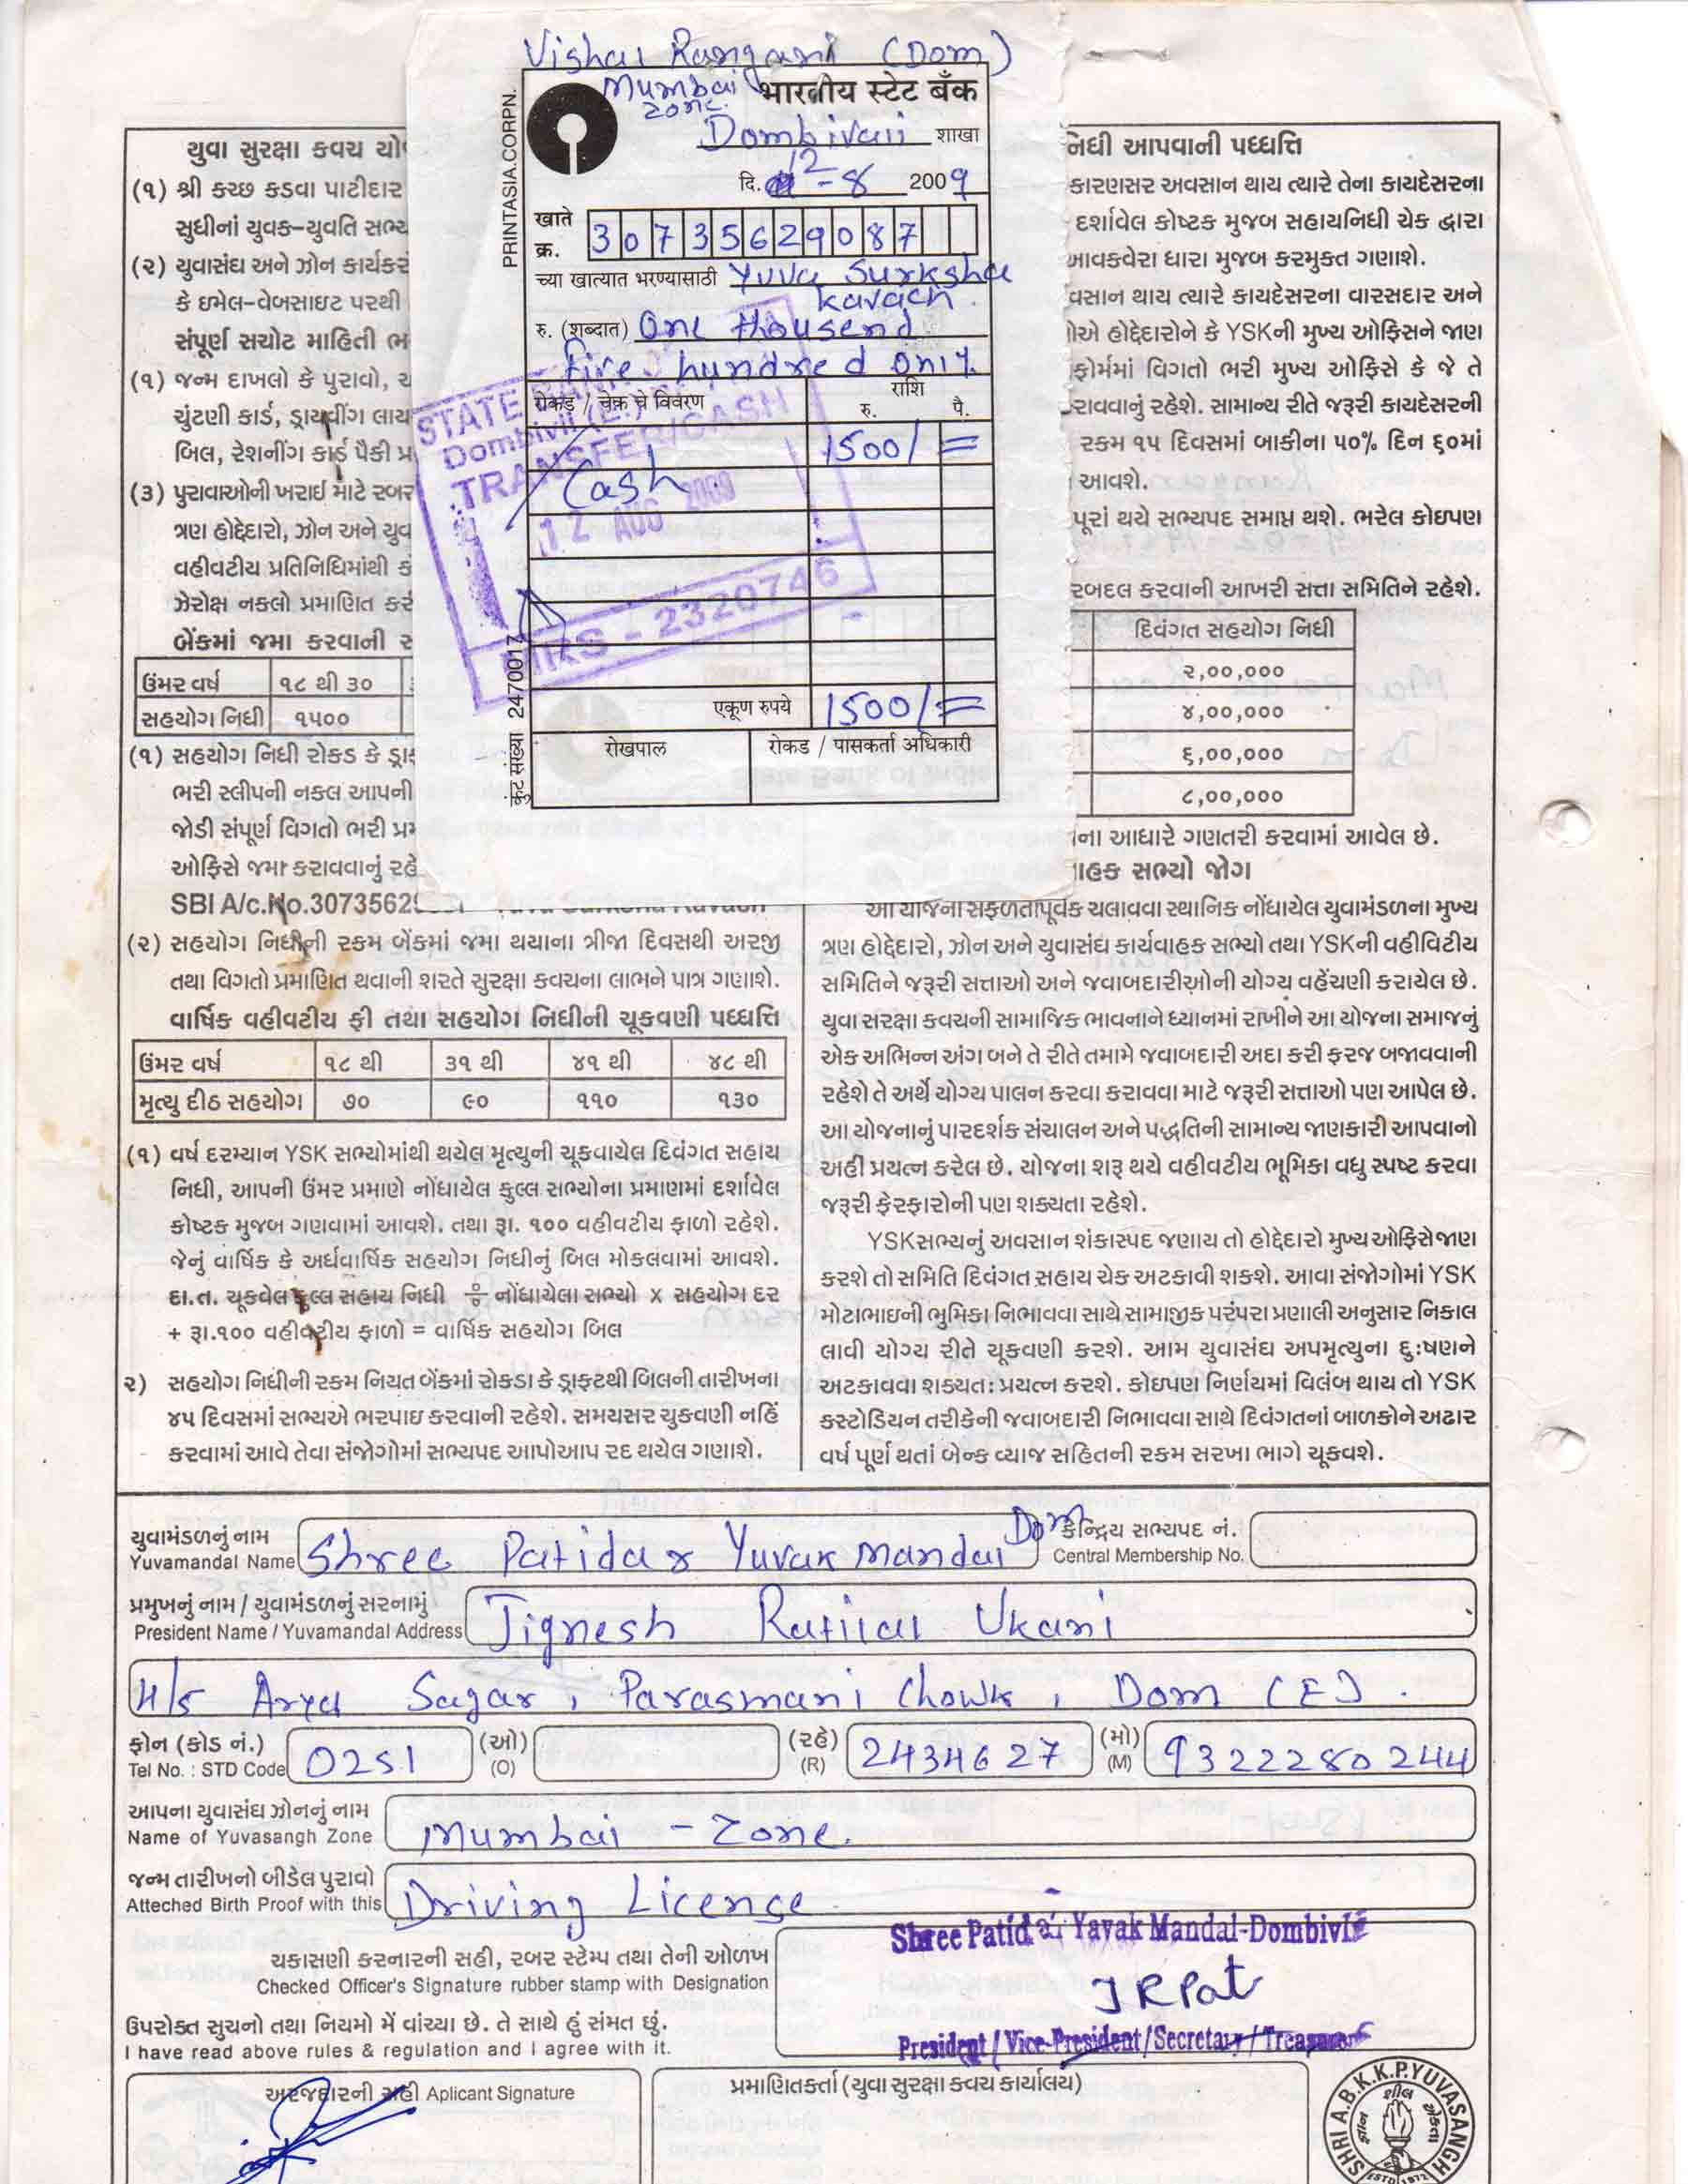 Vishal Rangani (Dom)
Mumbai zone
भारतीय स्टेट बँक
Dombivali शाखा
दि. 12-8 2009
PRINTASIA.CORPN.
खाते क्र. 30735629087
च्या खात्यात भरण्यासाठी Yuva Surksha
Kavach.
रु. (शब्दात) One thousend
five hundred only.
रोकड / चेक चे विवरण राशि
रु. पै.
1500/=
Cash
STATE
Dombivli (E.)
TRANSFER/CASH
12 AUG 2009
2320746
एकूण रुपये 1500/=
रोखपाल रोकड / पासकर्ता अधिकारी
कुंट संख्या 2470017
યુવા સુરક્ષા કવચ યો
(૧) શ્રી કચ્છ કડવા પાટીદાર
સુધીનાં યુવક-યુવતિ સભ્ય
(૨) યુવાસંઘ અને ઝોન કાર્યકરો
કે ઇમેલ-વેબસાઇટ પરથી
સંપૂર્ણ સચોટ માહિતી ભ
(૧) જન્મ દાખલો કે પુરાવો,
ચુંટણી કાર્ડ, ડ્રાયવીંગ લાય
બિલ, રેશનીંગ કાર્ડ પૈકી પ્ર
(૩) પુરાવાઓની ખરાઇ માટે રબર
ત્રણ હોદ્દેદારો, ઝોન અને યુવ
વહીવટીય પ્રતિનિધિમાંથી
ઝેરોક્ષ નકલો પ્રમાણિત કરે
બેંકમાં જમા કરવાની સ
ઉંમર વર્ષ ૧૮ થી ૩૦
સહયોગ નિધી ૧૫૦૦
(૧) સહયોગ નિધી રોકડ કે ડ્રા
ભરી સ્લીપની નકલ આપની
જોડી સંપૂર્ણ વિગતો ભરી પ્ર
ઓફિસે જમા કરાવવાનું રહે
SBI A/c.No.3073562
(૨) સહયોગ નિધીની રકમ બેંકમાં જમા થયાના ત્રીજા દિવસથી અરજી
તથા વિગતો પ્રમાણિત થવાની શરતે સુરક્ષા કવચના લાભને પાત્ર ગણાશે.
વાર્ષિક વહીવટીય ફી તથા સહયોગ નિધીની ચૂકવણી પધ્ધતિ
ઉંમર વર્ષ ૧૮ થી ૩૧ થી ૪૧ થી ૪૮ થી
મૃત્યુ દીઠ સહયોગ ૭૦ ૯૦ ૧૧૦ ૧૩૦
(૧) વર્ષ દરમ્યાન YSK સભ્યોમાંથી થયેલ મૃત્યુની ચૂકવાયેલ દિવંગત સહાય
નિધી, આપની ઉંમર પ્રમાણે નોંધાયેલ કુલ્લ સભ્યોના પ્રમાણમાં દર્શાવેલ
કોષ્ટક મુજબ ગણવામાં આવશે. તથા રૂા. ૧૦૦ વહીવટીય ફાળો રહેશે.
જેનું વાર્ષિક કે અર્ધવાર્ષિક સહયોગ નિધીનું બિલ મોકલવામાં આવશે.
દા.ત. ચૂકવેલ કુલ્લ સહાય નિધી ÷ નોંધાયેલા સભ્યો x સહયોગ દર
+ રૂા.૧૦૦ વહીવટીય ફાળો = વાર્ષિક સહયોગ બિલ
૨) સહયોગ નિધીની રકમ નિયત બેંકમાં રોકડા કે ડ્રાફ્ટથી બિલની તારીખના
૪૫ દિવસમાં સભ્યએ ભરપાઇ કરવાની રહેશે. સમયસર ચુકવણી નહિં
કરવામાં આવે તેવા સંજોગોમાં સભ્યપદ આપોઆપ રદ થયેલ ગણાશે.
નિધી આપવાની પધ્ધતિ
કારણસર અવસાન થાય ત્યારે તેના કાયદેસરના
દર્શાવેલ કોષ્ટક મુજબ સહાયનિધી ચેક દ્વારા
આવકવેરા ધારા મુજબ કરમુક્ત ગણાશે.
વસાન થાય ત્યારે કાયદેસરના વારસદાર અને
ોએ હોદ્દેદારોને કે YSKની મુખ્ય ઓફિસને જાણ
ફોર્મમાં વિગતો ભરી મુખ્ય ઓફિસે કે જે તે
રાવવાનું રહેશે. સામાન્ય રીતે જરૂરી કાયદેસરની
રકમ ૧૫ દિવસમાં બાકીના ૫૦% દિન ૬૦માં
આવશે.
પૂરાં થયે સભ્યપદ સમાપ્ત થશે. ભરેલ કોઇપણ
રબદલ કરવાની આખરી સત્તા સમિતિને રહેશે.
દિવંગત સહયોગ નિધી
૨,૦૦,૦૦૦
૪,૦૦,૦૦૦
૬,૦૦,૦૦૦
૮,૦૦,૦૦૦
ના આધારે ગણતરી કરવામાં આવેલ છે.
ાહક સભ્યો જોગ
આ યોજના સફળતાપૂર્વક ચલાવવા સ્થાનિક નોંધાયેલ યુવામંડળના મુખ્ય
ત્રણ હોદ્દેદારો, ઝોન અને યુવાસંઘ કાર્યવાહક સભ્યો તથા YSKની વહીવિટીય
સમિતિને જરૂરી સત્તાઓ અને જવાબદારીઓની યોગ્ય વહેંચણી કરાયેલ છે.
યુવા સરક્ષા કવચની સામાજિક ભાવનાને ધ્યાનમાં રાખીને આ યોજના સમાજનું
એક અભિન્ન અંગ બને તે રીતે તમામે જવાબદારી અદા કરી ફરજ બજાવવાની
રહેશે તે અર્થે યોગ્ય પાલન કરવા કરાવવા માટે જરૂરી સત્તાઓ પણ આપેલ છે.
આ યોજનાનું પારદર્શક સંચાલન અને પદ્ધતિની સામાન્ય જાણકારી આપવાનો
અહીં પ્રયત્ન કરેલ છે. યોજના શરૂ થયે વહીવટીય ભૂમિકા વધુ સ્પષ્ટ કરવા
જરૂરી ફેરફારોની પણ શક્યતા રહેશે.
YSKસભ્યનું અવસાન શંકાસ્પદ જણાય તો હોદ્દેદારો મુખ્ય ઓફિસે જાણ
કરશે તો સમિતિ દિવંગત સહાય ચેક અટકાવી શકશે. આવા સંજોગોમાં YSK
મોટાભાઇની ભુમિકા નિભાવવા સાથે સામાજીક પરંપરા પ્રણાલી અનુસાર નિકાલ
લાવી યોગ્ય રીતે ચૂકવણી કરશે. આમ યુવાસંઘ અપમૃત્યુના દુઃષણને
અટકાવવા શક્યતઃ પ્રયત્ન કરશે. કોઇપણ નિર્ણયમાં વિલંબ થાય તો YSK
કસ્ટોડિયન તરીકેની જવાબદારી નિભાવવા સાથે દિવંગતનાં બાળકોને અઢાર
વર્ષ પૂર્ણ થતાં બેન્ક વ્યાજ સહિતની રકમ સરખા ભાગે ચૂકવશે.
યુવામંડળનું નામ
Yuvamandal Name Shree Patidar Yuvak Mandal Dom
કેન્દ્રિય સભ્યપદ નં.
Central Membership No.
પ્રમુખનું નામ / યુવામંડળનું સરનામું
President Name / Yuvamandal Address Jignesh Ratilal Ukani
4/5 Arya Sagar, Parasmani Chowk, Dom (E).
ફોન (કોડ નં.) (ઓ) (રહે) (મો)
Tel No. : STD Code 0251 (O) (R) 2434627 (M) 9322280244
આપના યુવાસંઘ ઝોનનું નામ
Name of Yuvasangh Zone Mumbai - Zone.
જન્મ તારીખનો બીડેલ પુરાવો
Atteched Birth Proof with this Driving License
ચકાસણી કરનારની સહી, રબર સ્ટેમ્પ તથા તેની ઓળખ
Checked Officer's Signature rubber stamp with Designation
Shree Patidar Yavak Mandal-Dombivli
JRPat
President / Vice-President / Secretary / Treasurer
ઉપરોક્ત સુચનો તથા નિયમો મેં વાંચ્યા છે. તે સાથે હું સંમત છું.
I have read above rules & regulation and I agree with it.
અરજદારની સહી Aplicant Signature
પ્રમાણિતકર્તા (યુવા સુરક્ષા કવચ કાર્યાલય)
SHRI A.B.K.K.P.YUVASANGH
શીલ